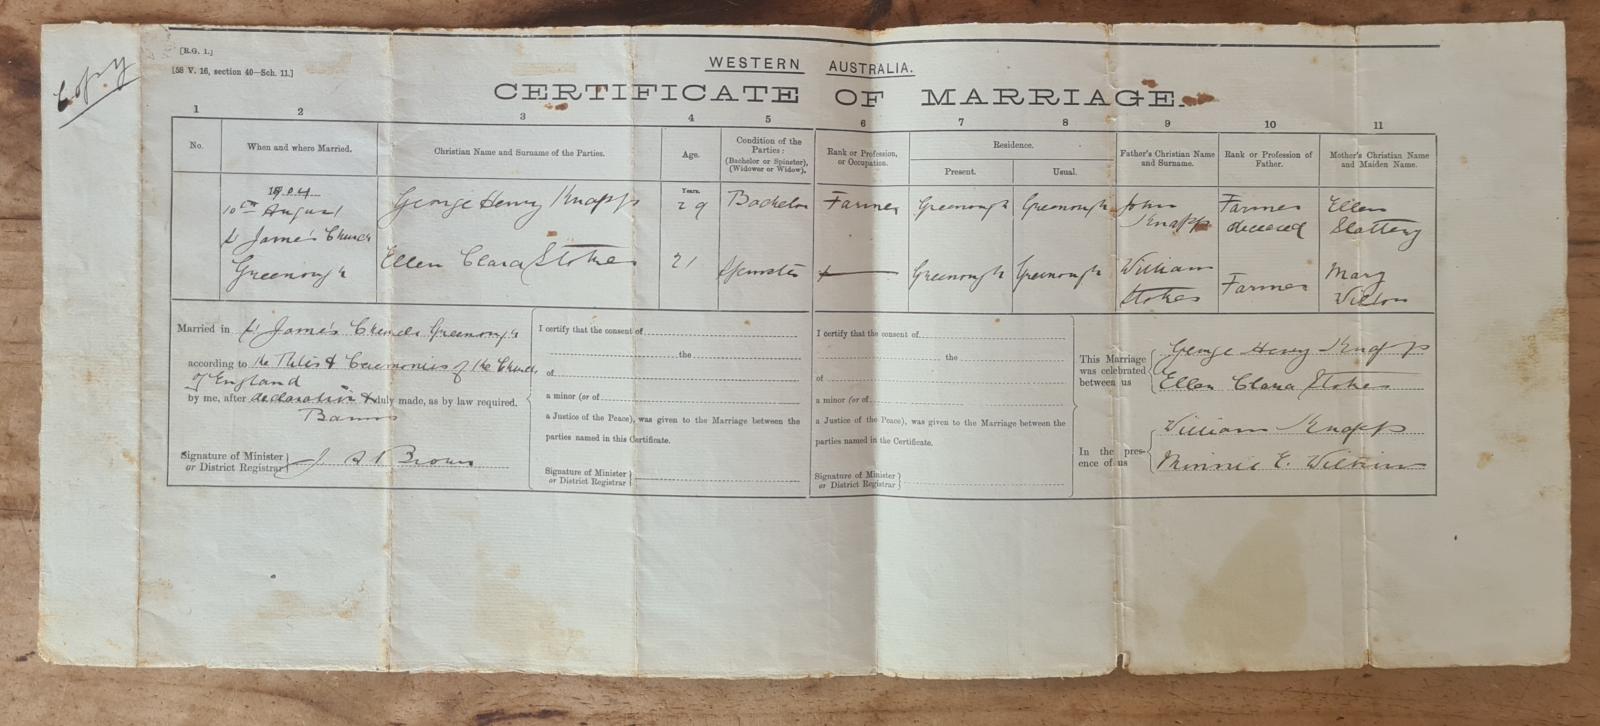 Copy
[R.G. 1.]
[58 V. 16, section 40—Sch. 11.]
WESTERN AUSTRALIA.
CERTIFICATE OF MARRIAGE.
1 2 3 4 5 6 7 8 9 10 11
No.
When and where Married.
Christian Name and Surname of the Parties.
Age.
Condition of the
Parties:
(Bachelor or Spinster),
(Widower or Widow).
Rank or Profession,
or Occupation.
Residence.
Present.
Usual.
Father's Christian Name
and Surname.
Rank or Profession of
Father.
Mother's Christian Name
and Maiden Name.
1904
10th August
St James's Church
Greenough
George Henry Knapp
Years.
29
Bachelor
Farmer
Greenough
Greenough
John
Knapp
Farmer
deceased
Ellen
Slattery
Ellen Clara Stokes
21
Spinster
Greenough
Greenough
William
Stokes
Farmer
Mary
Married in St James's Church Greenough
according to the Rites & Ceremonies of the Church
of England
by me, after declaration & duly made, as by law required.
Banns
Signature of Minister
or District Registrar
Brown
I certify that the consent of
the
of
a minor (or of
a Justice of the Peace), was given to the Marriage between the
parties named in this Certificate.
Signature of Minister
or District Registrar
I certify that the consent of
the
of
a minor (or of
a Justice of the Peace), was given to the Marriage between the
parties named in the Certificate.
Signature of Minister
or District Registrar
This Marriage
was celebrated
between us
George Henry Knapp
Ellen Clara Stokes
In the pres-
ence of us
William Knapp
Minnie E.